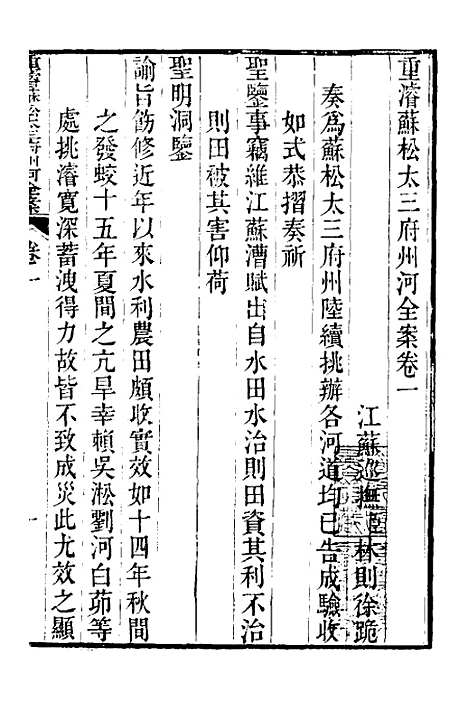 重濬蘇松太三府州河全案卷一
江蘇巡撫臣林則徐跪
奏爲蘇松太三府州陸續挑辦各河道均已告成驗收
如式恭摺奏祈
聖鑒事竊維江蘇漕賦出自水田水治則田資其利不治
則田被其害仰荷
聖明洞鑒
諭旨飭修近年以來水利農田頗收實效如十四年秋間
之發蛟十五年夏間之亢旱幸賴吳淞劉河白茆等
處挑濬寬深蓄洩得力故皆不致成災此尤效之顯
重濬蘇松太三府州河全案 卷一 一